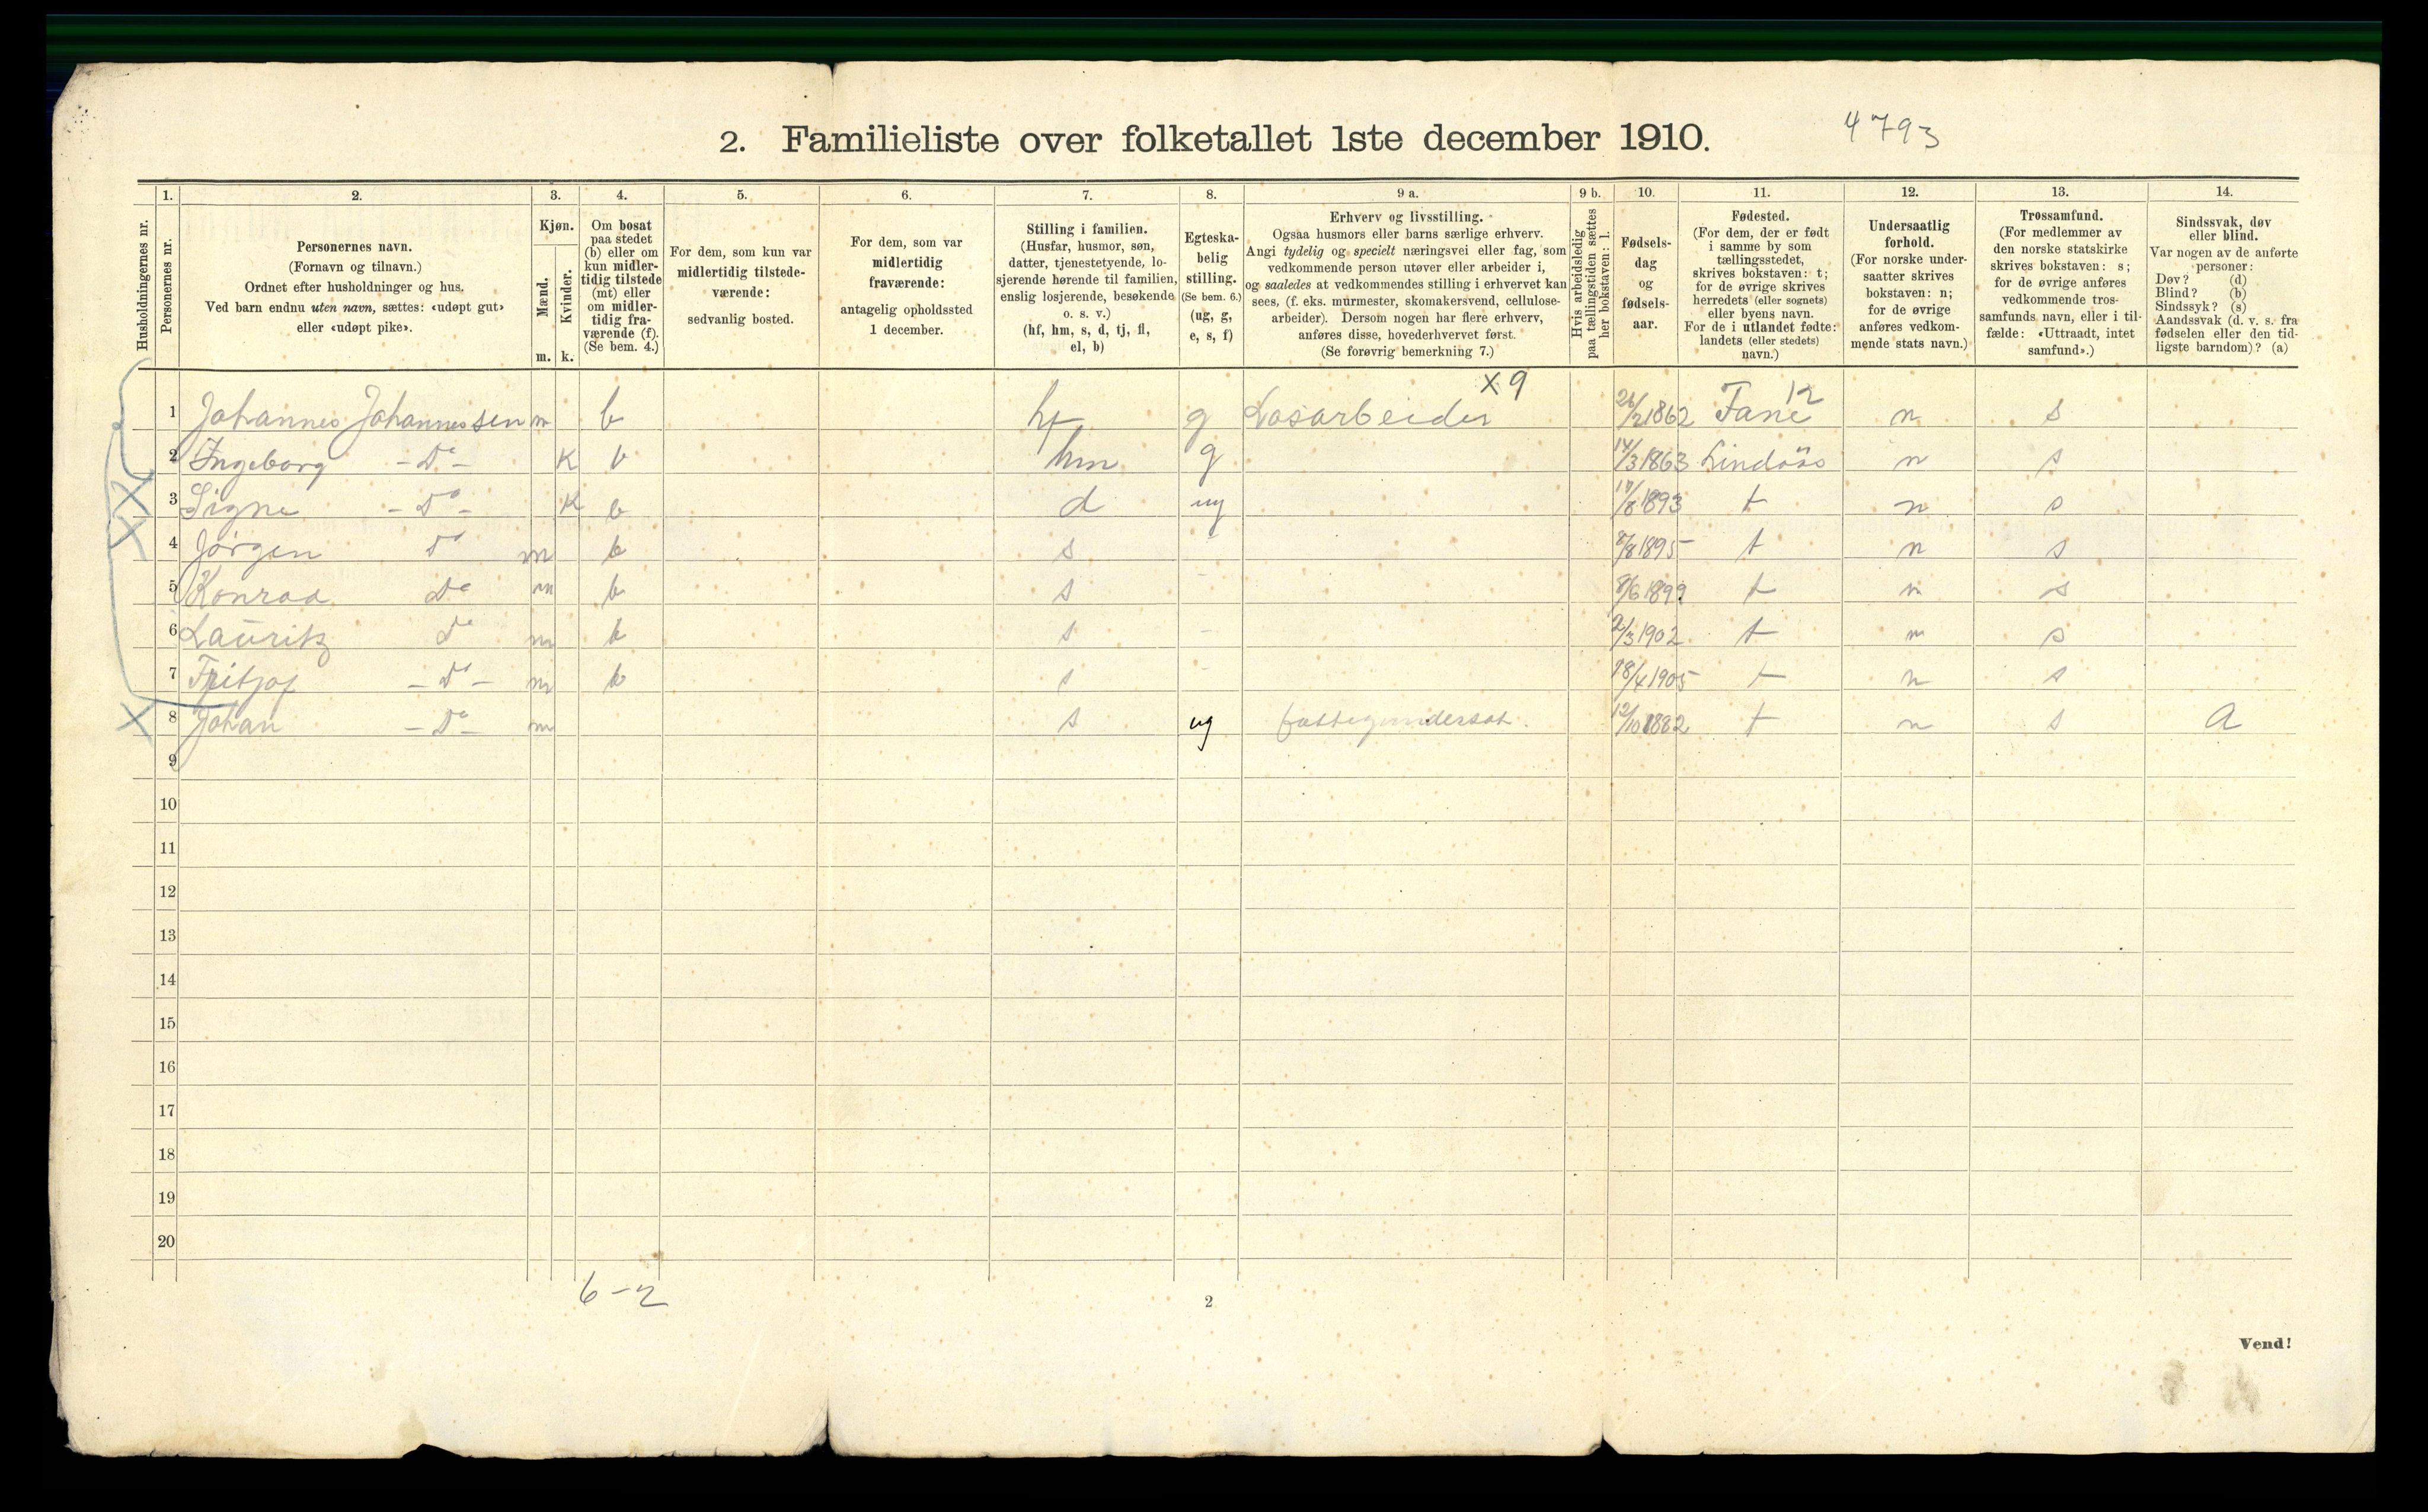 2. Familieliste over folketallet 1ste december 1910.
4793
Husholdningernes nr.
1.
Personernes nr.
2.
Personernes navn.
(Fornavn og tilnavn.)
Ordnet efter husholdninger og hus.
Ved barn endnu uten navn, sættes: «udøpt gut»
eller «udøpt pike».
3.
Kjøn.
Mænd.
Kvinder.
m. k.
4.
Om bosat
paa stedet
(b) eller om
kun midler-
tidig tilstede
(mt) eller
om midler-
tidig fra-
værende (f).
(Se bem. 4.)
5.
For dem, som kun var
midlertidig tilstede-
værende:
sedvanlig bosted.
6.
For dem, som var
midlertidig
fraværende:
antagelig opholdssted
1 december.
7.
Stilling i familien.
(Husfar, husmor, søn,
datter, tjenestetyende, lo-
sjerende hørende til familien,
enslig losjerende, besøkende
o. s. v.)
(hf, hm, s, d, tj, fl,
el, b)
8.
Egteska-
belig
stilling.
(Se bem. 6.)
(ug, g,
e, s, f)
9 a.
Erhverv og livsstilling.
Ogsaa husmors eller barns særlige erhverv.
Angi tydelig og specielt næringsvei eller fag, som
vedkommende person utøver eller arbeider i,
og saaledes at vedkommendes stilling i erhvervet kan
sees, (f. eks. murmester, skomakersvend, cellulose-
arbeider). Dersom nogen har flere erhverv,
anføres disse, hovederhvervet først.
(Se forøvrig bemerkning 7.)
9 b.
Hvis arbeidsledig
paa tællingstiden sættes
her bokstaven: l.
10.
Fødsels-
dag
og
fødsels-
aar.
11.
Fødested.
(For dem, der er født
i samme by som
tællingsstedet,
skrives bokstaven: t;
for de øvrige skrives
herredets (eller sognets)
eller byens navn.
For de i utlandet fødte:
landets (eller stedets)
navn.)
12.
Undersaatlig
forhold.
(For norske under-
saatter skrives
bokstaven: n;
for de øvrige
anføres vedkom-
mende stats navn.)
13.
Trossamfund.
(For medlemmer av
den norske statskirke
skrives bokstaven: s;
for de øvrige anføres
vedkommende tros-
samfunds navn, eller i til-
fælde: «Uttraadt, intet
samfund».)
14.
Sindssvak, døv
eller blind.
Var nogen av de anførte
personer:
Døv? (d)
Blind? (b)
Sindssyk? (s)
Aandssvak (d. v. s. fra
fødselen eller den tid-
ligste barndom)? (a)
x9 12
1 Johannes Johannessen m b hf g Løsarbeider 26/2 1862 Fane n s
2 Ingeborg -Do- K b hm g 14/3 1863 Lindäas n s
3 Signe -Do- K b d ug 1893 t n s
4 Jørgen Do m b s - 8/8 1895 t n s
5 Konrad Do m b s - 8/6 1899 t n s
6 Lauritz Do m b s - 2/3 1902 t n s
7 Fritjof -Do- m b s - 18/4 1905 t n s
8 Johan -Do- m s ug fattigunderst. 12/10 1882 t n s a
9
10
11
12
13
14
15
16
17
18
19
20
6-2
2
Vend!